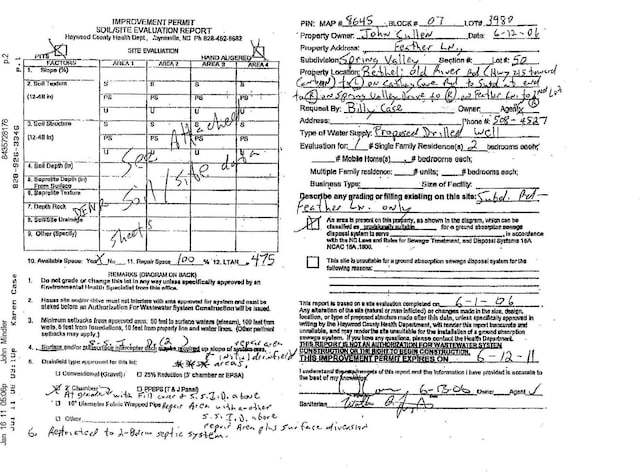 IMPROVEMENT PERMIT
SOIL/SITE EVALUATION REPORT
Haywood County Health Dept., Waynesville, NC Ph 828-452-6682
SITE EVALUATION
PITS HAND AUGERED
FACTORS AREA 1 AREA 2 AREA 3 AREA 4
1. Slope (%)
2. Soil Texture S S S S
(12-48 in) PS PS PS PS
U U U U
3. Soil Structure S S S S
(12-48 in) PS PS PS PS
U U U
4. Soil Depth (in)
5. Saprolite Depth (in)
From Surface
6. Saprolite Texture
7. Depth Rock
8. Soil/Site Drainage
9. Other (Specify)
See Attached
DENR Soil/site data
sheets
10. Available Space: Yes X No 11. Repair Space 100 % 12. LTAR .475
REMARKS (DIAGRAM ON BACK)
1. Do not grade or change this lot in any way unless specifically approved by an
Environmental Health Specialist from this office.
2. House site and/or drive must not interfere with area approved for system and must be
staked before an Authorization For Wastewater System Construction will be issued.
3. Minimum setbacks from approved area: 50 feet to surface waters (stream), 100 feet from
wells, 5 feet from foundations, 10 feet from property line and water lines. (Other pertinent
setbacks may apply.)
S.S.I.D. (2) repair area
4. Surface and/or subsurface interceptor ditch may be required up slope of system area.
& initial drainfield
areas.
5. Drainfield type approved for this lot:
Conventional (Gravel) 25% Reduction (3' chamber or EPSA)
X 2' Chamber PPBPS (T & J Panel)
At grade with Fill cover & S.S.I.D. above
10" Diameter Fabric Wrapped Pipe Repair Area with another
S.S.I.D. above
Other repair Area plus surface diversion
6. Restricted to 2-Bdrm septic system.
PIN: MAP # 8645 BLOCK # 07 LOT# 3980
Property Owner: John Cullen Date: 6-12-06
Property Address: Feather Ln,
Subdivision: Spring Valley Section #: Lot #: 50
Property Location: Bethel: Old River Rd (Hwy 215 toward
Canton) to (L) on Cathey Cove Rd to Subd at end
to (R) on Spring Valley Drive to (R) on Feather Ln to Lot
Request By: Billy Case Owner: Agent: X
Address: Phone #: 508-4527
Type of Water Supply: Proposed Drilled Well
Evaluation for: 1 # Single Family Residence(s) 2 bedrooms each;
# Mobile Home(s) # bedrooms each;
Multiple Family residence: # units; # bedrooms each;
Business Type: Size of Facility:
Describe any grading or filling existing on this site: Subd. Rd-
Feather Ln. only
An area is present on this property, as shown in the diagram, which can be
classified as provisionally suitable for a ground absorption sewage
disposal system to serve in accordance
with the NC Laws and Rules for Sewage Treatment, and Disposal Systems 15A
NCAC 18A .1900.
This site is unsuitable for a ground absorption sewage disposal system for the
following reasons:
This report is based on a site evaluation completed on 6-1-06
Any alteration of the site (natural or man inflicted) or changes made in the size, design,
location, or type of proposed structure made after this date, unless specifically approved in
writing by the Haywood County Health Department, will render this report inaccurate and
unavailable, and may render the site unsuitable for the installation of a ground absorption
sewage system. If you have any questions, please contact the Health Department.
THIS REPORT IS NOT AN AUTHORIZATION FOR WASTEWATER SYSTEM
CONSTRUCTION OR THE RIGHT TO BEGIN CONSTRUCTION.
THIS IMPROVEMENT PERMIT EXPIRES ON 6-12-11
I understand the requirements of this report and the information I have provided is accurate to
the best of my knowledge.
6-13-06 Owner Agent
Sanitarian
p.2
8435728176
John Mindler
Jan 16 11 05:06p
P.1
828-926-3246
Karen Case